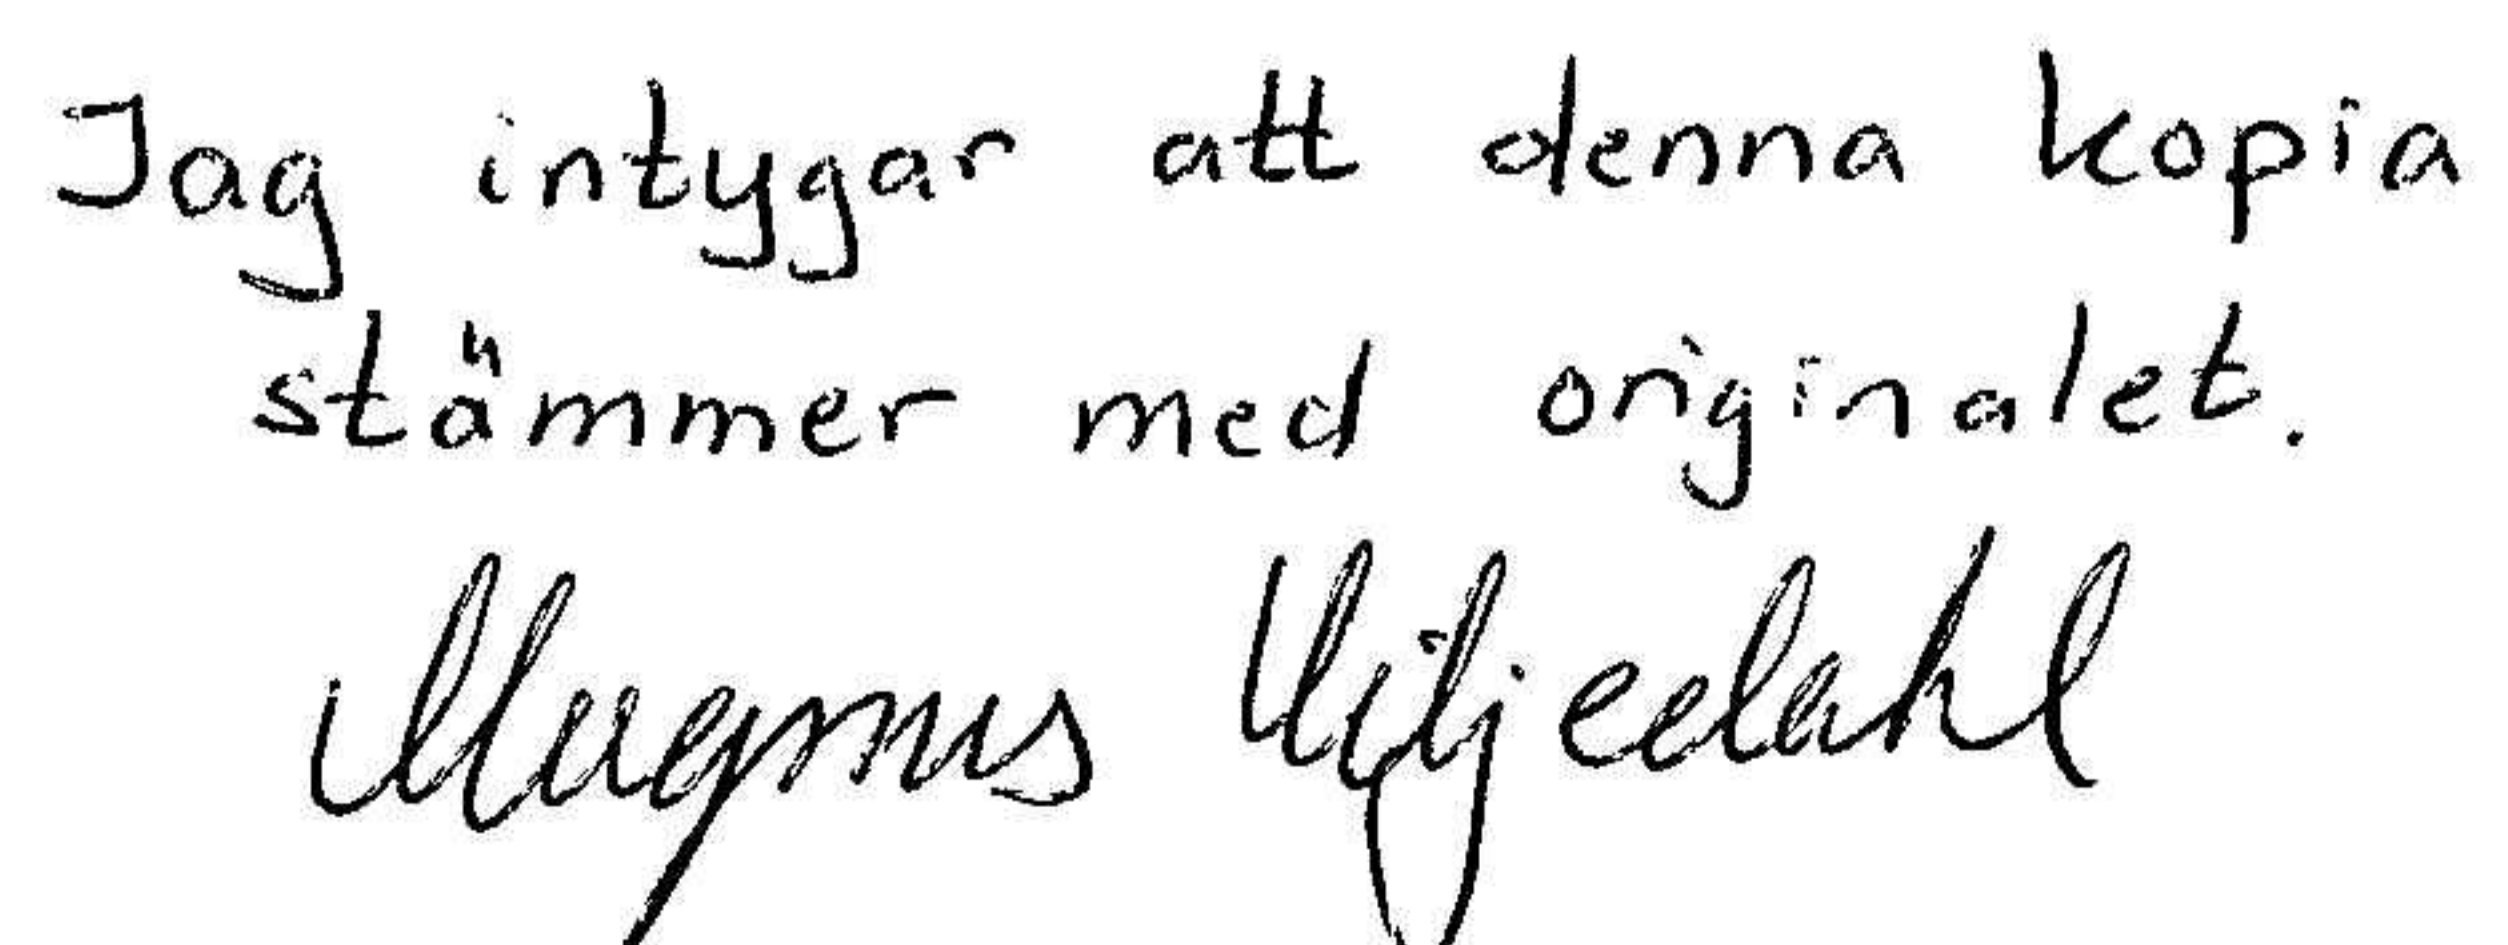 Jag intygar att denna kopia
stämmer med originalet.
Magnus